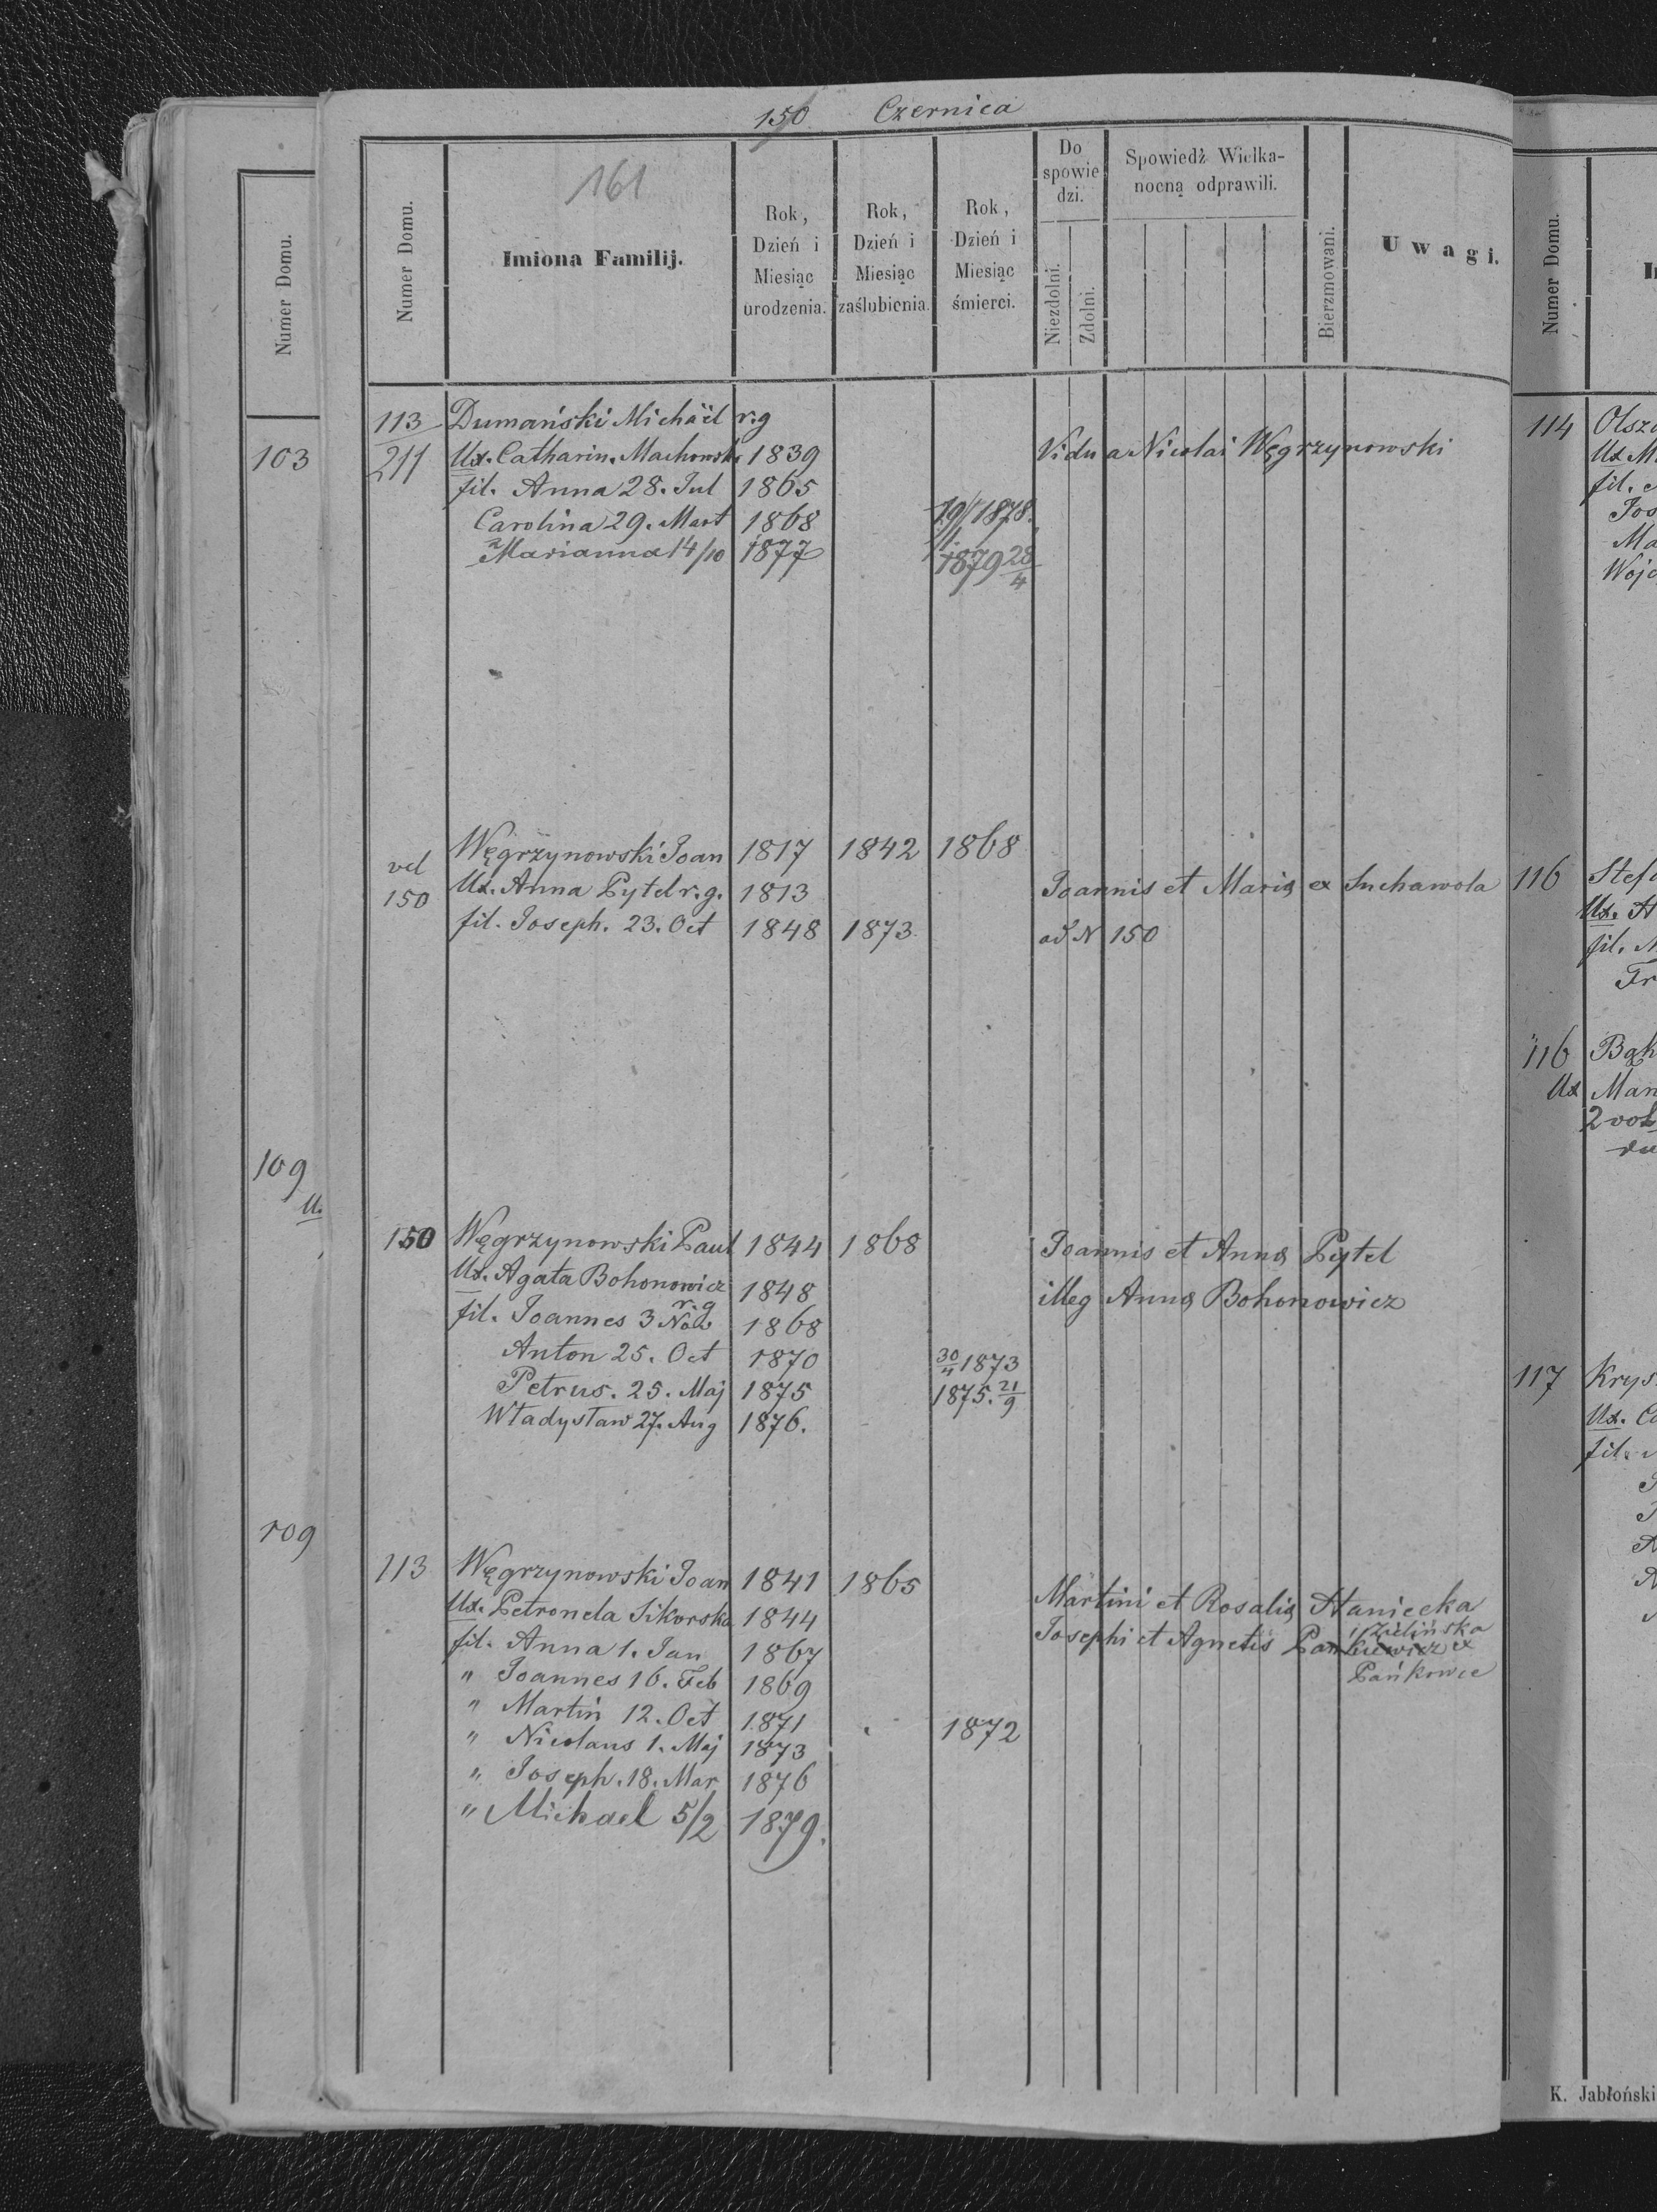 150 Czernica
161
Numer Domu.
Numer Domu.
Imiona Familij.
Rok, Dzień i Miesiąc urodzenia.
Rok, Dzień i Miesiąc zaślubienia.
Rok, Dzień i Miesiąc śmierci.
Do spowiedzi.
Niezdolni.
Zdolni.
Spowiedź Wielkanocną odprawili.
Bierzmowani.
Uwagi.
Numer Domu.
113 Dumański Michaël r.g
103
211 Ux. Catharin. Machowsk. 1839 Vidua Nicolai Węgrzynowski
fil. Anna 28. Jul 1865
Carolina 29. Mart 1868 1878.
Marianna 14/10 1877 1879 28/4
vel Węgrzynowski Joan 1817 1842 1868
150 Ux. Anna Pytel r.g. 1813 Joannis et Maria ex Suchawola
fil. Joseph. 23. Oct 1848 1873 ad N 150
109
U.
150 Węgrzynowski Paul 1844 1868 Joannis et Anna Pytel
Ux. Agata Bohonowicz r.g 1848 illeg Anna Bohonowicz
fil. Joannes 3 Nov 1868
Anton 25. Oct 1870 30/4 1873
Petrus. 25. Maj 1875 1875. 21/9
Władysław 27. Aug 1876.
109
113 Węgrzynowski Joan 1841 1865 Martini et Rosalia Haniecka
Ux. Petronela Sikorska 1844 Josephi et Agnetis Zielińska ex
fil. Anna 1. Jan 1867 Pańkowce
" Joannes 16. Feb 1869
" Martin 12. Oct 1871 1872
" Nicolaus 1. Maj 1873
" Joseph. 18. Mar 1876
" Michael 5/2 1879.
114 Olsz
Ux M
fil.
Jos
Ma
Wojc
116 Stef
Ux. A
fil.
Fr
116 Bąk
Ux Mar
2 vot
117 Krys
Ux. Ca
fil.
K. Jabłoński